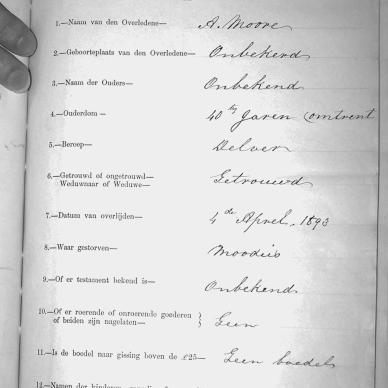 1.—Naam van den Overledene— A. Moore
2.—Geboorteplaats van den Overledene— Onbekend
3.—Naam der Ouders— Onbekend
4.—Ouderdom— 40 tig Jaren (omtrent
5.—Beroep— Delver
6.—Getrouwd of ongetrouwd— Getrouwd
Weduwnaar of Weduwe—
7.—Datum van overlijden— 4 de April 1893
8.—Waar gestorven— Moodies
9.—Of er testament bekend is— Onbekend
10.—Of er roerende of onroerende goederen } Geen
of beiden zijn nagelaten— }
11.—Is de boedel naar gissing boven de £25— Geen boedel
12.—Namen der kinderen